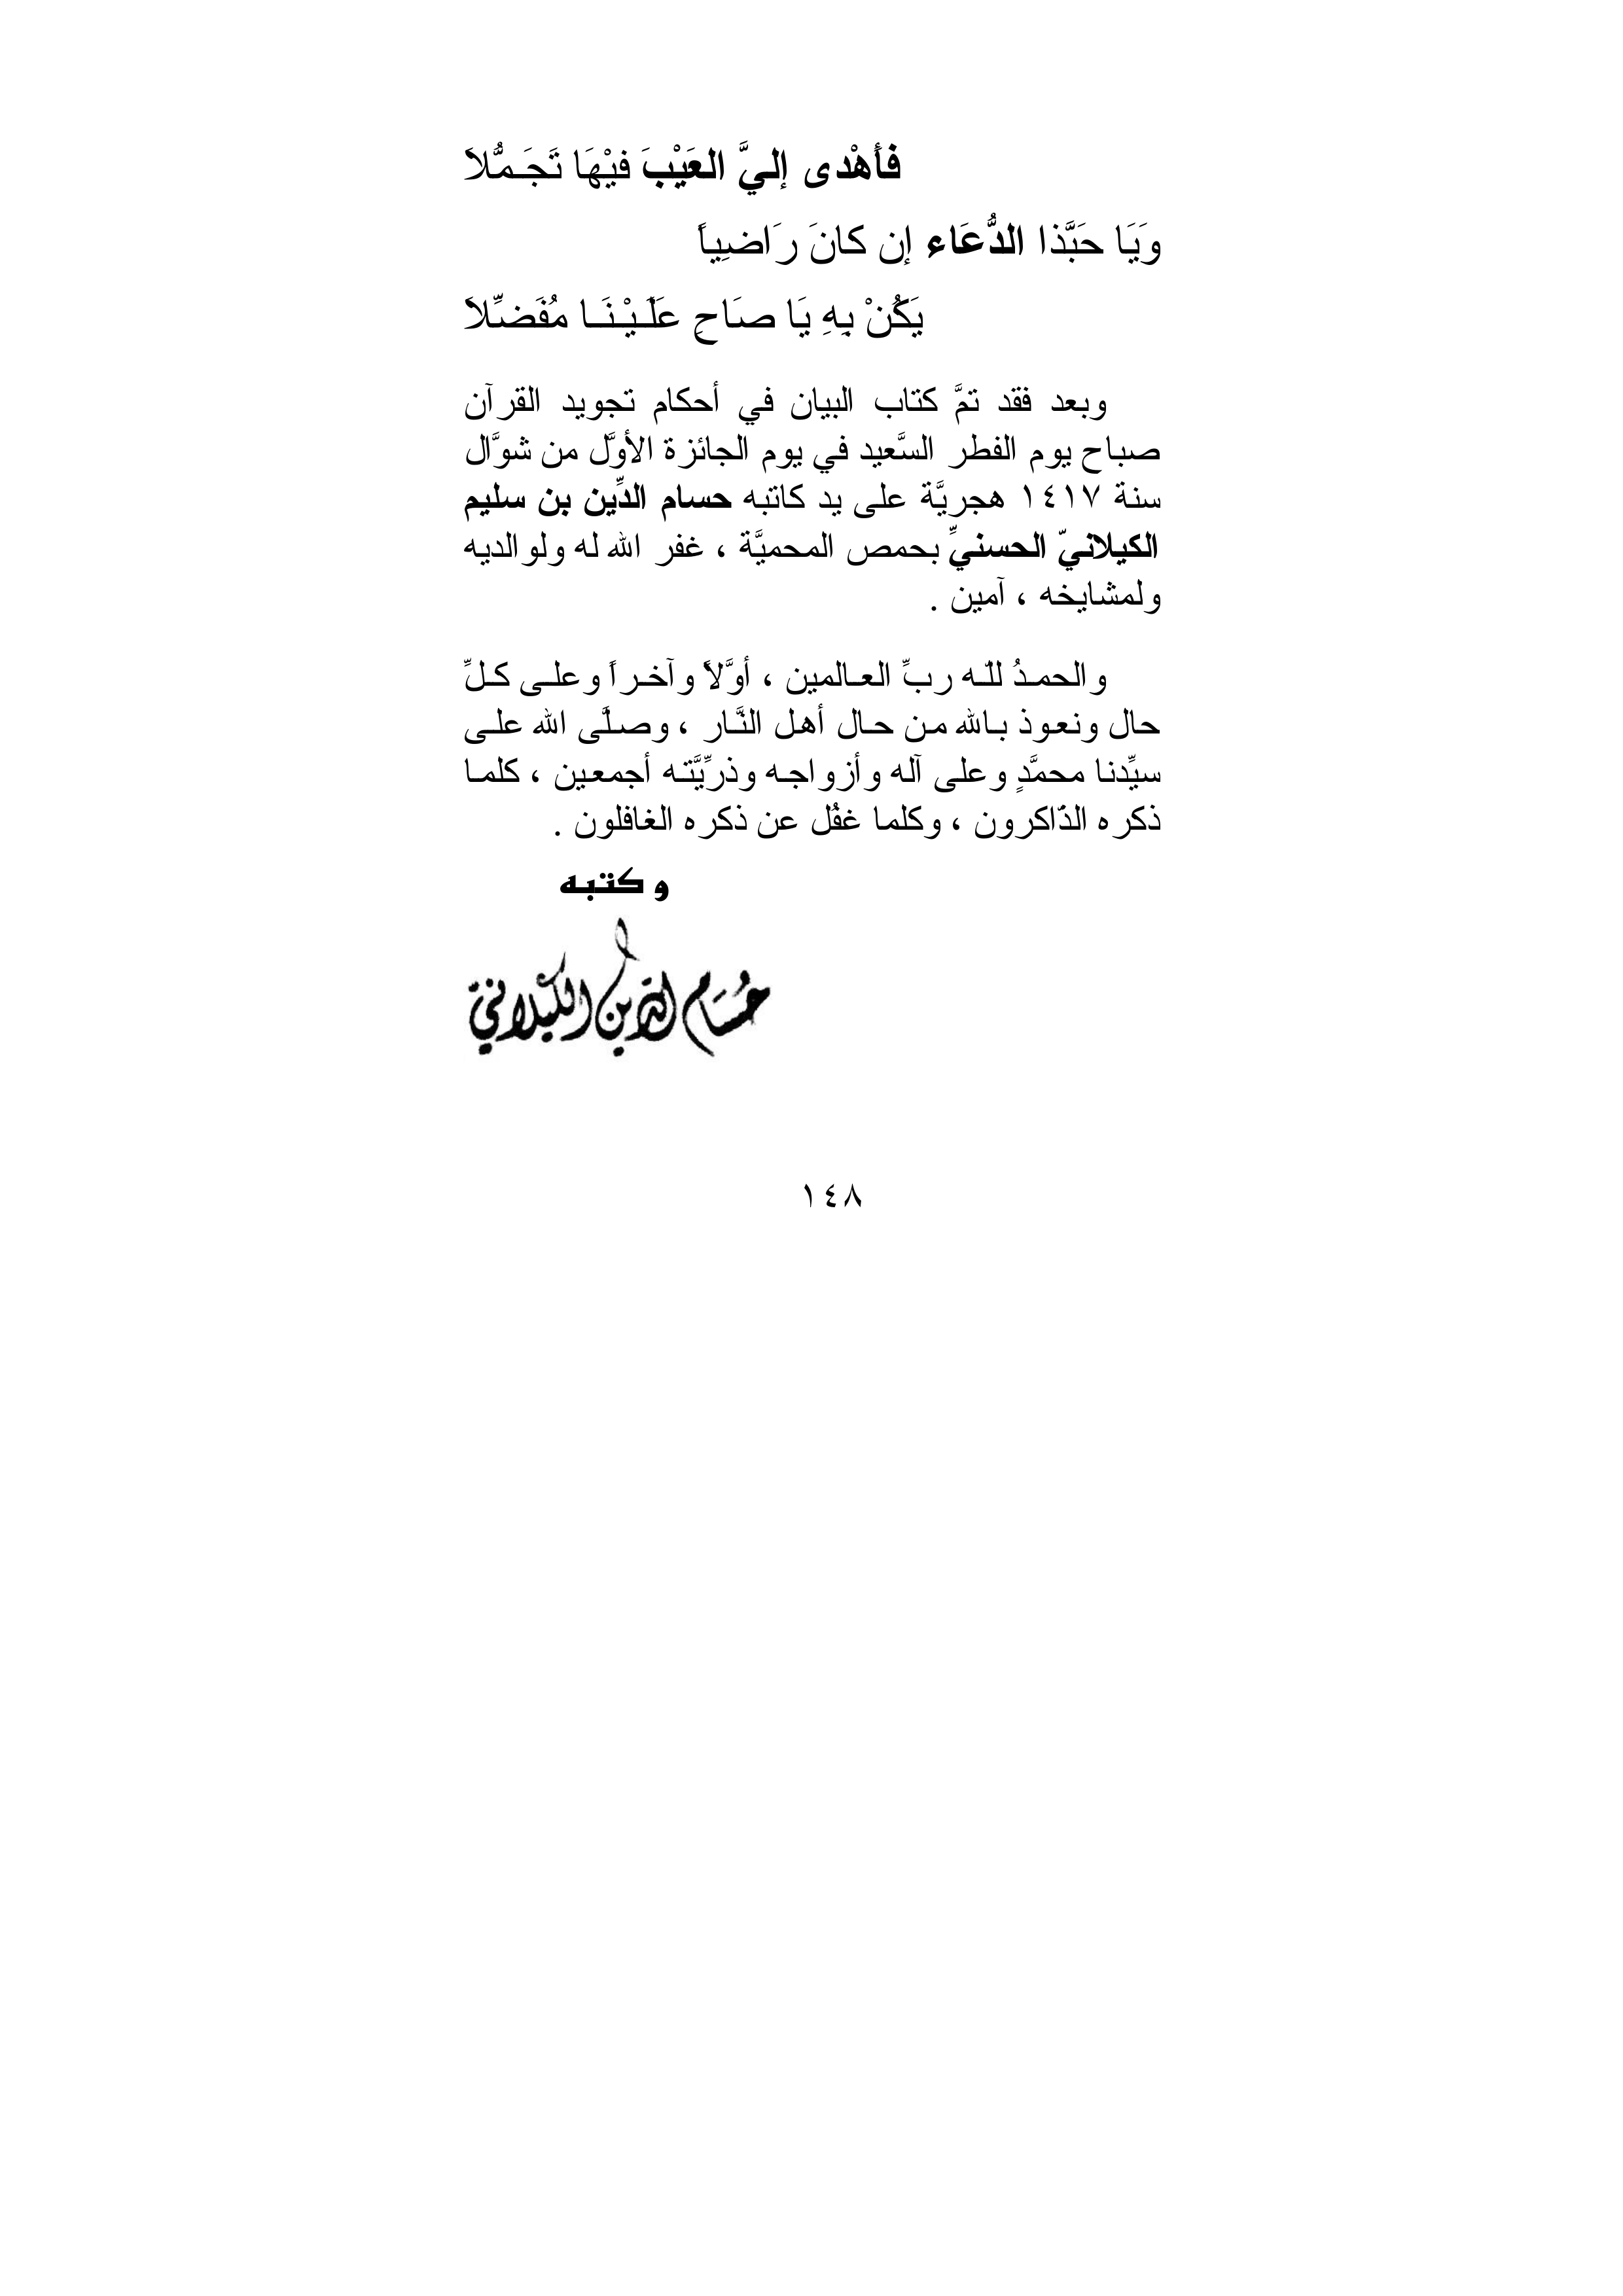 فَأَهْدى إليَّ العَيْبَ فيْهَا تَجَـمُّلاَ
وَيَا حَبَّذا الدُّعَاء إن كانَ رَاضيِياً
يَكُنْ بِهِ يَا صَاحِ عَلَـيْـنَــا مُفَضِّلاَ
وبعد فقد تمَّ كتاب البيان في أحكام تجويد القرآن
صباح يوم الفطر السَّعيد في يوم الجائزة الأوَّل من شوَّال
سنة ١٤١٧ هجريَّة على يد كاتبه حسام الدِّين بن سليم
الكيلانيّ الحسنيِّ بحمص المحميَّة ، غفر الله له ولوالديه
ولمشايخه ، آمين .
والحمـدُ للـّه ربِّ العـالمين ، أوَّلاً وآخـراً وعلـى كـلِّ
حال ونعوذ بـالله مـن حـال أهـل النَّـار ، وصـلَّى الله علـى
سيِّدنا محمَّدٍ وعلى آله وأزواجـه وذرِّيَّتـه أجمعـين ، كلمـا
ذكره الذّاكرون ، وكلما غفُل عن ذكره الغافلون .
وكتبه
حُسَام الدّين الكيلاني
١٤٨